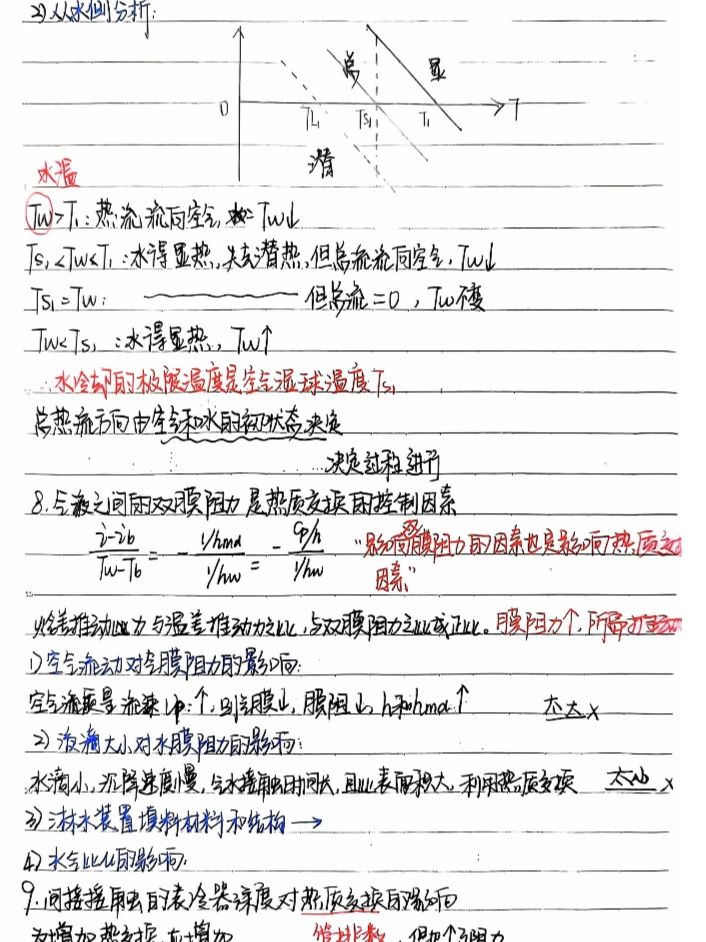 2)从水侧分析:
总 显
0 TL1 Ts1 T1 T
潜
水温
Tw>T1:热流流向空气, Tw↓
Ts1<Tw<T1:水得显热,失去潜热,但总流流向空气,Tw↓
Ts1=Tw: 但总流=0,Tw不变
Tw<Ts1:水得显热,Tw↑
∴水冷却的极限温度是空气湿球温度Ts1
总热流方向由空气和水的初状态决定
决定过程进行
8.气液之间的双膜阻力是热质交换的控制因素
(i-ib)/(Tw-Tb) = - (1/hmd)/(1/hw) = - (Cp/h)/(1/hw) “影响双膜阻力的因素也是影响热质交
因素”
焓差推动力与温差推动力之比,与双膜阻力之比成正比。膜阻力↑,所需推动
1)空气流动对气膜阻力的影响:
空气流质量流速vρ↑,则气膜↓,膜阻↓,h和hmd↑ 太大×
2)液滴大小对水膜阻力的影响:
水滴小,沉降速度慢,气水接触时间长,且比表面积大,利用热质交换 太小×
3)淋水装置填料材料和结构→
4)水气比的影响:
9.间接接触的表冷器深度对热质交换的影响
为增加热交换,应增加 管排数,但